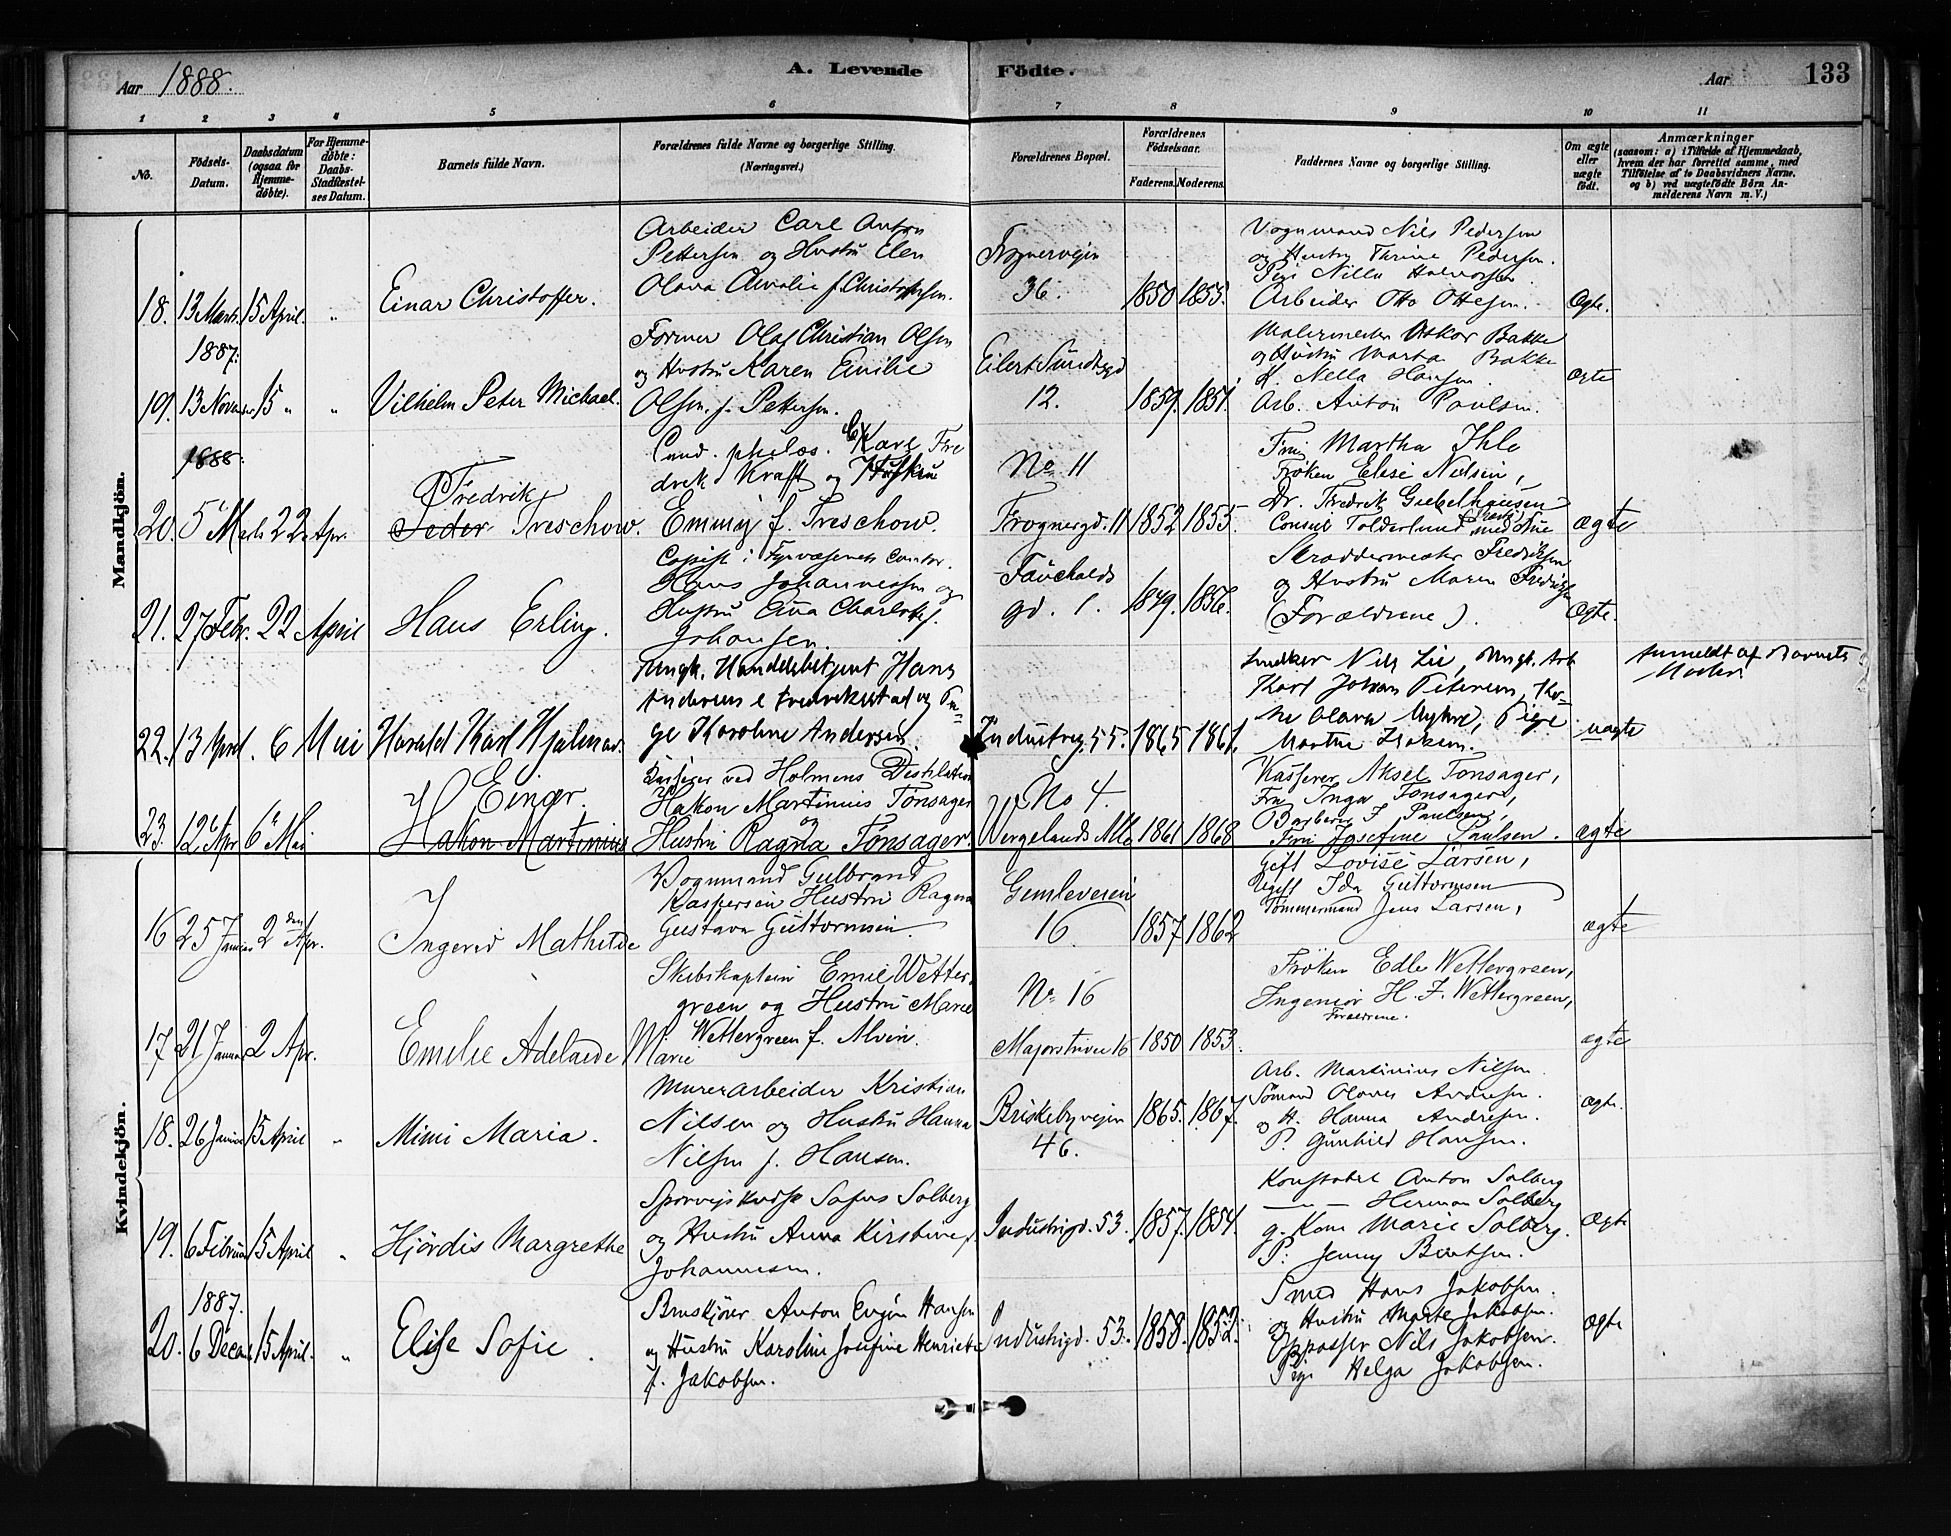 Aar 1888.
A. Levende Födte.
Aar
133
1 2 3 4 5 6 7 8 9 10 11
No.
Födsels-Datum.
Daabsdatum (ogsaa for Hjemme-döbte).
For Hjemme-döbte: Daabs-Stadfæstel-ses Datum.
Barnets fulde Navn.
Forældrenes fulde Navne og borgerlige Stilling. (Næringsvei.)
Forældrenes Bopæl.
Forældrenes Födselsaar.
Faderens. Moderens.
Faddernes Navne og borgerlige Stilling.
Om ægte eller uægte födt.
Anmærkninger
(saasom: a) i Tilfælde af Hjemmedaab,
hvem der har forrettet samme, med
Tilföielse af to Daabsvidners Navne,
og b) ved uægtefödte Börn An-
melderens Navn m. V.)
Mandkjön.
Arbeider Carl Anton
Pettersen og Hustru Elen
Olava Amalie f. Christoffersen.
18. 13 Marts 15 April. " Einar Christoffer.
Frognervejen
36.
1850 1855.
Vognmand Nils Pedersen
og Hustru Thrine Pedersen.
Pige Nilla Halvorsen
Arbeider Otto Ottesen.
Ægte.
1887.
19. 13 Novem 15 " " Vilhelm Peter Michael.
Former Olaf Christian Olsen
og Hustru Karen Emilie
Olsen f. Pettersen.
Eilert Sundtsgd
12.
1859. 1851.
Malermester Oskar Bakke
og Hustru Marta Bakke
K. Nella Hansen.
Arb. Anton Paulsen.
ægte
1888.
20. 5 Marts 22 Apr.
Fredrik
Peder Treschow.
Cand. philos. Karl Fre
drik Kraft og Hustru
Emmy f. Treschow.
No 11
Frognergd. 11
1852 1855.
Fru Martha Ihle
Frøken Elise Nielsen,
Dr. Fredrik Giebelhausen
Consul Tolderlund med Frue
ægte
21. 27 Febr. 22 April Hans Erling.
Copist i Fyrvæsenets Contor.
Hans Johannessen og
Hustru Ema Charlotte f.
Johansen
Fauchalds
gd. 1.
1849. 1856.
Skræddermester Fredriksen
og Hustru Maren Fredriksen
(Forældrene).
Ægte.
22. 13 April. 6 Mai Harald Karl Hjalmar.
Ungk. Handelsbetjent Hans
Andersen e Fredrikstad og Pi-
ge Karoline Andersen.
Industrig. 55.
1865 1861.
Snedker Nils Lie, Ungk. Arb
Karl Johan Petersen,
Olava Myhre, Pige
Marthe
uægte
Anmeldt af Barnets
Moder.
23. 12 Apr 6 Mai
Einar.
Hakon Martinius
Kasserer ved Holmens Destilation
Hakon Martinius Tønsager
og
Hustru Ragna Tønsager.
No 4.
Wergelands Alle
1861 1868
Kasserer Aksel Tønsager,
Fru Inga Tønsager,
Barberer I Paulsen,
Fru Josefine Paulsen.
ægte
Kvindekjön.
16 25 Januar 2den Apr. Ingerid Mathilde
Vognmand Gulbrand
Kaspersen Hustru Ragna
Gustava Guttormsen
Gimleveien
16
1857 1862
Gift Lovise Larsen,
Ugift Ida Guttormsen
Tømmermand Jens Larsen,
ægte
17 21 Januar 2 Apr. Emelie Adelaide Marie
Skibskaptein Emil Wetter-
green og Hustru Marie
Wettergreen f. Alvin.
No 16
Majorstuvei 16
1850 1853.
Frøken Edle Wettergreen,
Ingeniør H. F. Wettergreen,
Forældrene.
ægte
18. 26 Januar 15 April " Mimi Maria.
Murerarbeider Kristian
Nilsen og Hustru Hanna
Nilsen f. Hansen.
Briskebyvejen
46.
1865. 1867.
Arb. Martinius Nilsen.
Sømand Olaves Andresen.
og H. Hanna Andresen.
P. Gunhild Hansen.
Ægte.
19. 6 Februar 15 April " Hjördis Margrethe
Sporvejskudsk Sofus Solberg
og Hustru Anna Kirstine f.
Johannesen.
Industrigd. 53.
1857. 1854.
Konstabel Anton Solberg
— " — Herman Solberg
g. Kone Marie Solberg.
P. Jenny Berntsen.
Ægte
1887.
20. 6 Decem 15 April. " Elise Sofie.
Bruskjører Anton Eugen Hansen
og Hustru Karoline Josefine Henriette
f. Jakobsen.
Industrigd. 53.
1858. 1852.
Smed Hans Jakobsen.
og Hustru Marte Jakobsen.
Oppasser Nils Jakobsen.
Pige Helga Jakobsen.
Ægte